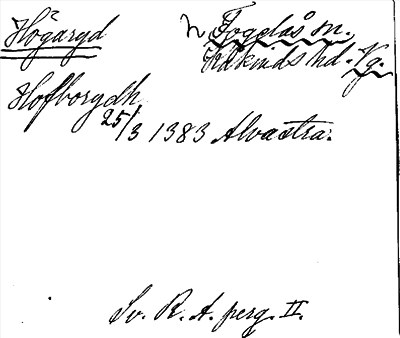 Högärgd
n Fogelås sn.
Kåkinds hd. Vg.
Hofborgdh
25/3 1383 Alvastra.
Sv. R. A. perg. II.